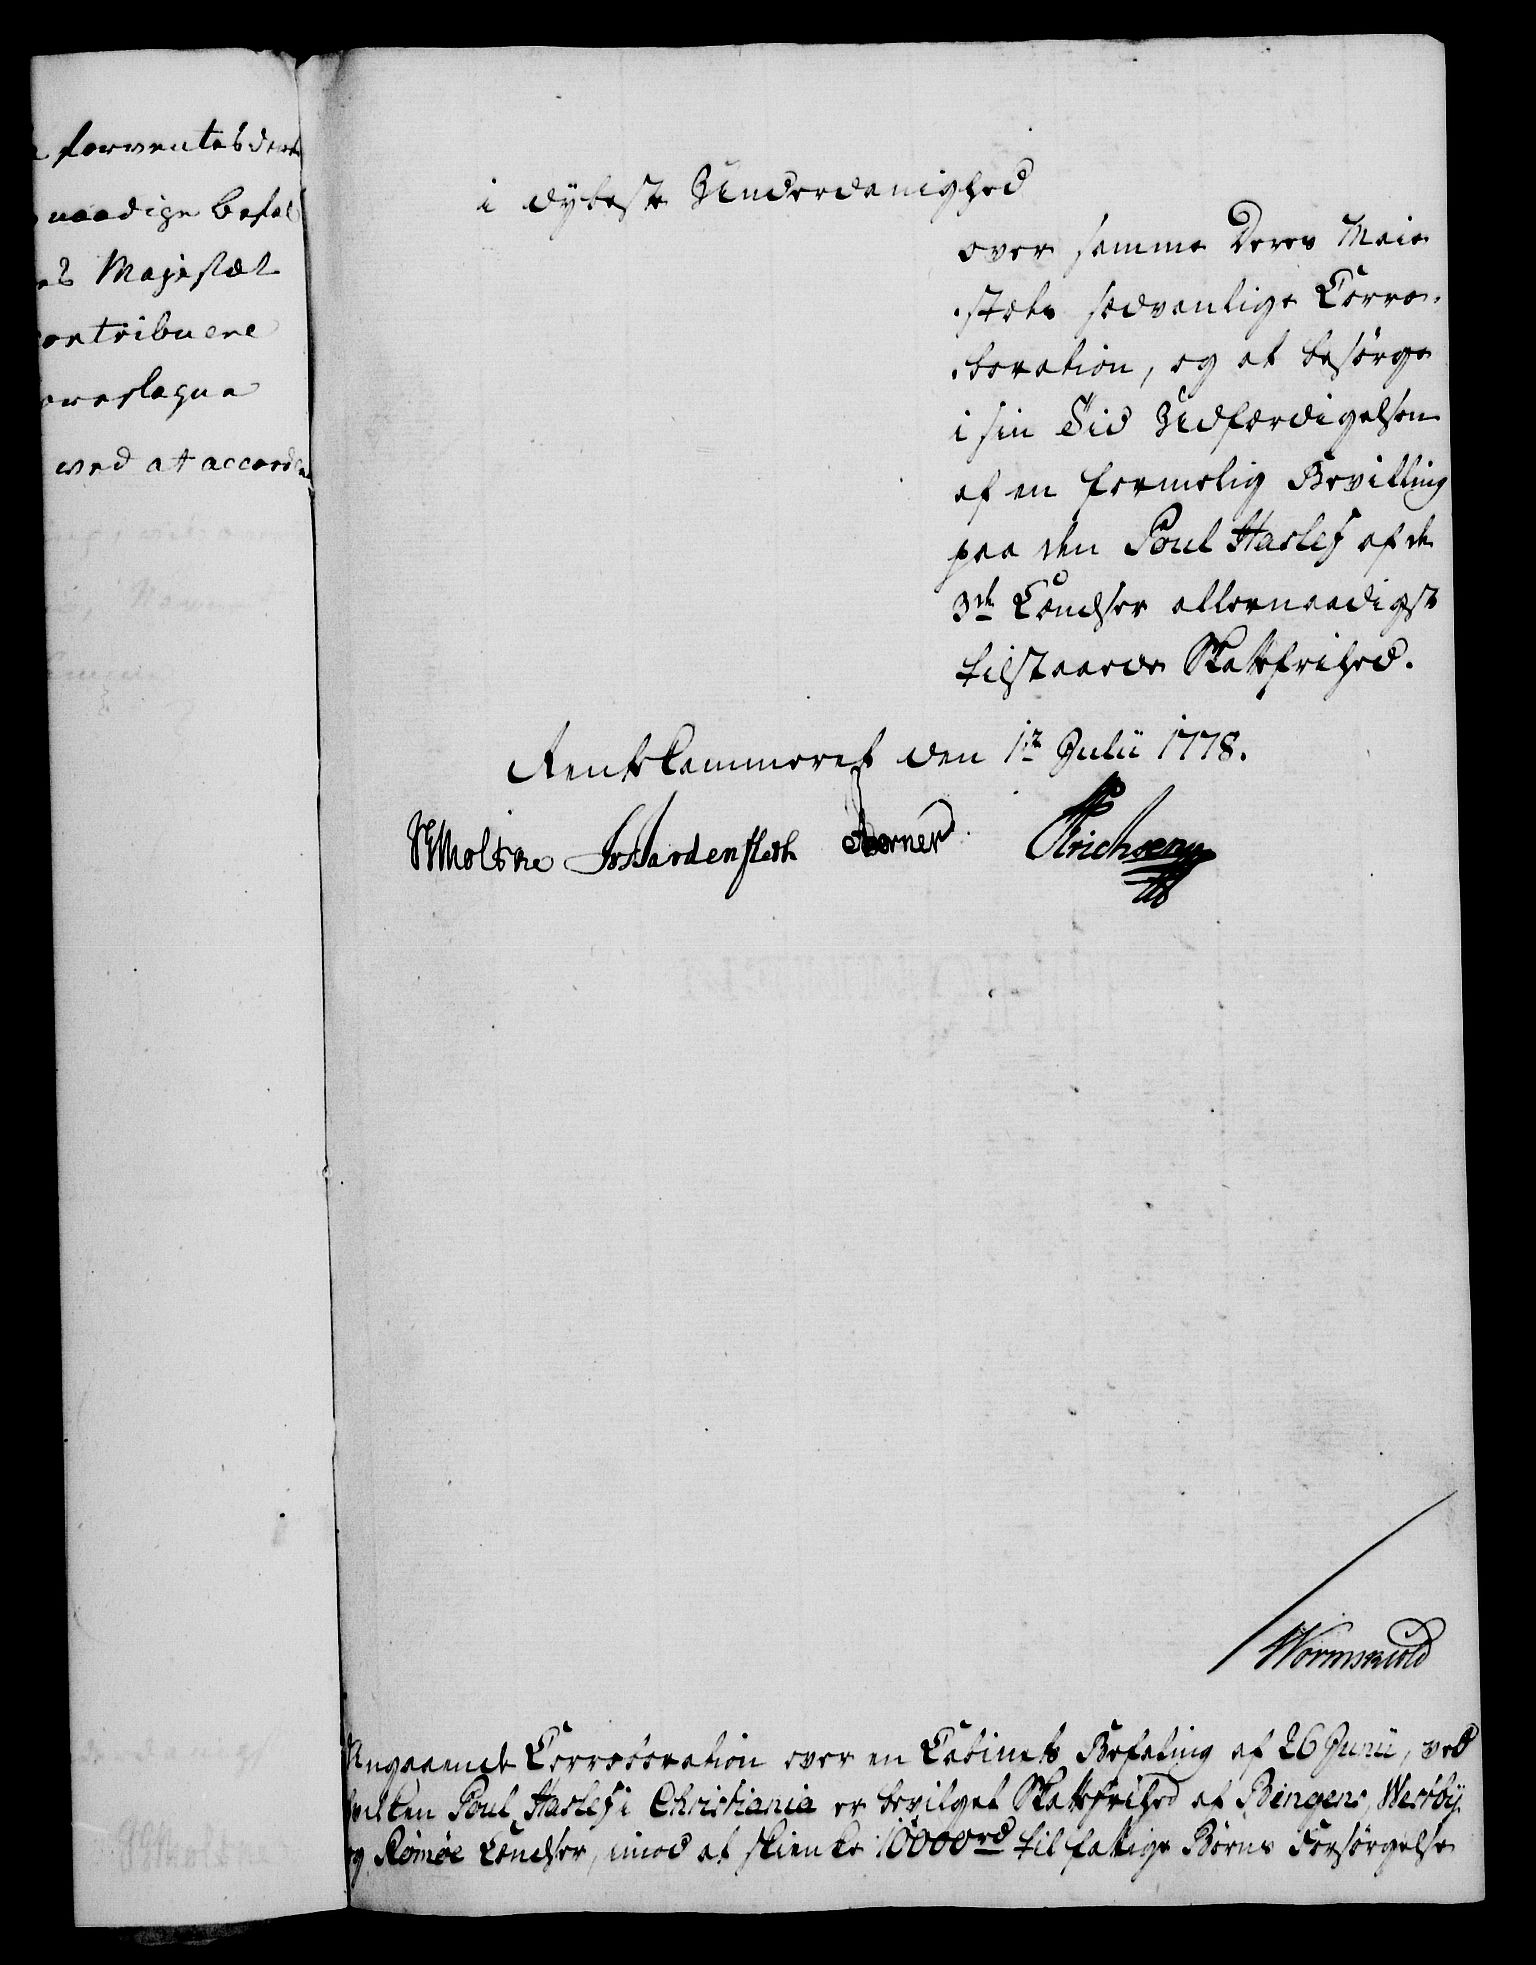 forventes der
naadige Befal
Majestæt
contribuere
foreslagne
ved at accorde
i dybeste Underdanighed
over samme Deres Maie
stæts sædvanlige Corro-
boration, og at besørge
i sin Tid Udfærdigelsen
af en formelig Bevilling
paa den Poul Haslef af de
3de Lændser allernaadigst
tilstaaede Skattefrihed.
Rentekammeret den 12 Julii 1778.
Moltke JvHardenfleth Berner Erichsen
Wormskiold
Angaaende Corroboration over en Cabinets Befaling af 26 Junii, ved
hvilken Poul Haslef i Christiania er bevilget Skattefrihed af Bingens, Wesøby
og Romøe Lændser, imod at skienke 10000 rd til fattige Børns Forsørgelse